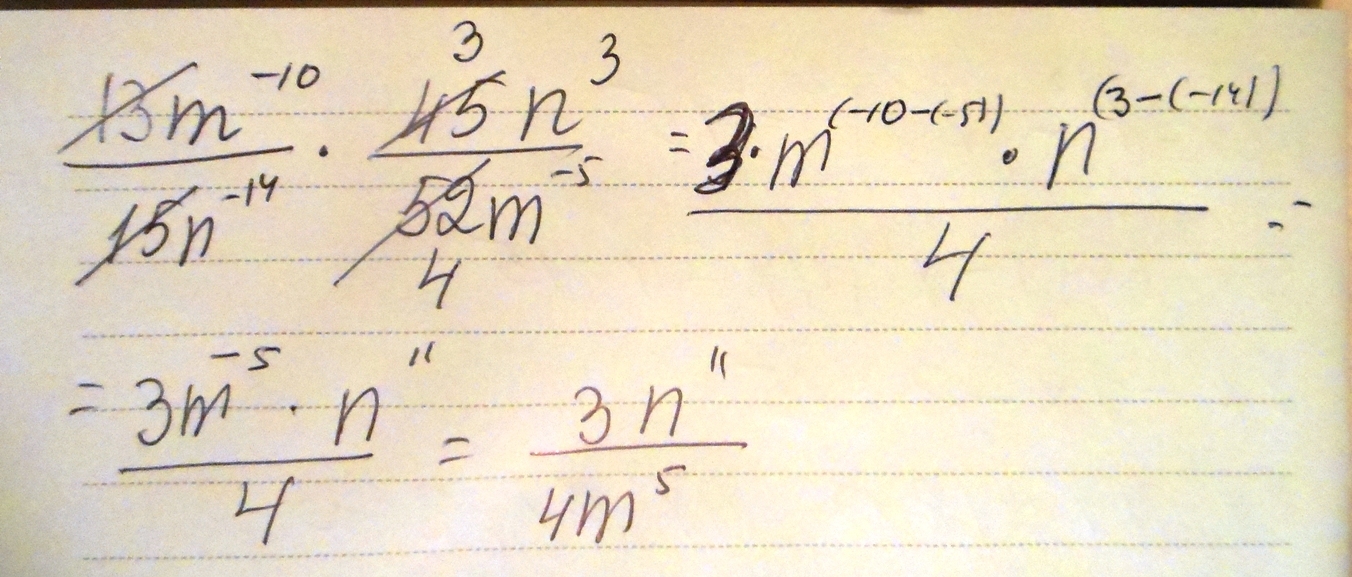 13m^-10 / 15n^-14 · 45n^3 / 52m^-5 = 3·m^(-10-(-5)) · n^(3-(-14)) / 4 =
3
4
= 3m^-5 · n^11 / 4 = 3n^11 / 4m^5